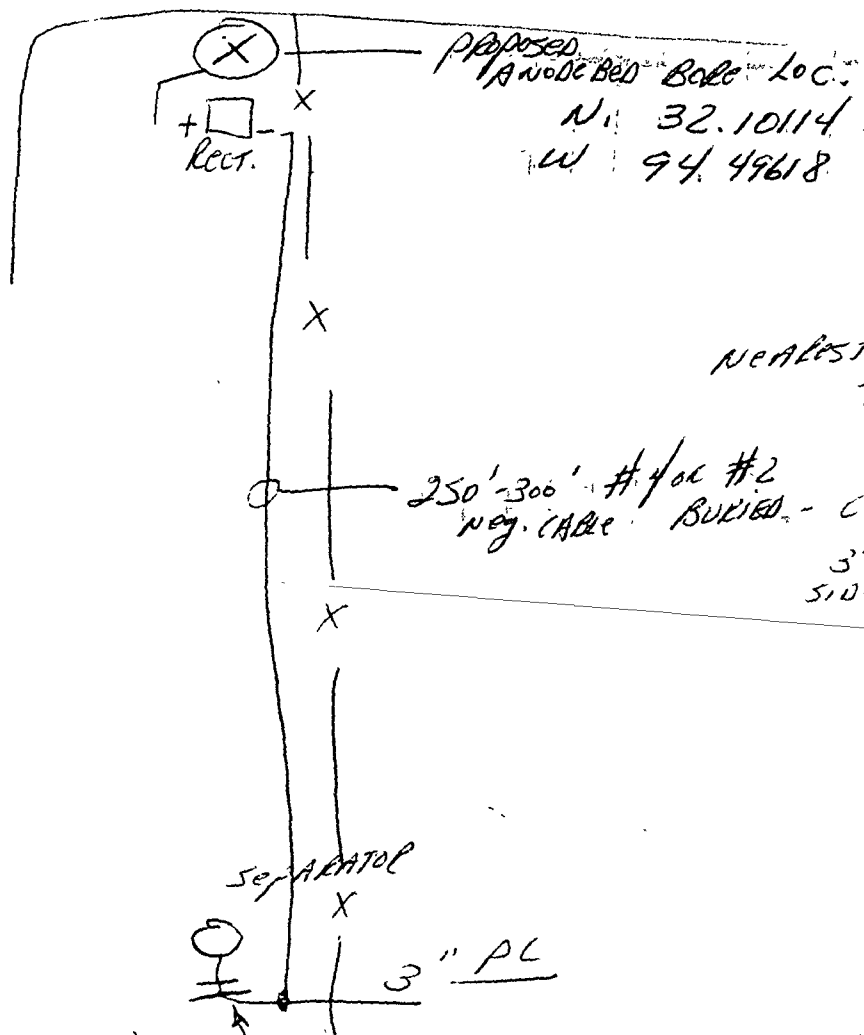 X
PROPOSED
ANODE BED BORE LOC.
N. 32.10114
W 94.49618
X
+ -
RECT.
X
NEAREST
250'-300' #4 OR #2
NEG. CABLE BURIED - C
3"
SID
X
SEPARATOR
X
3" PL